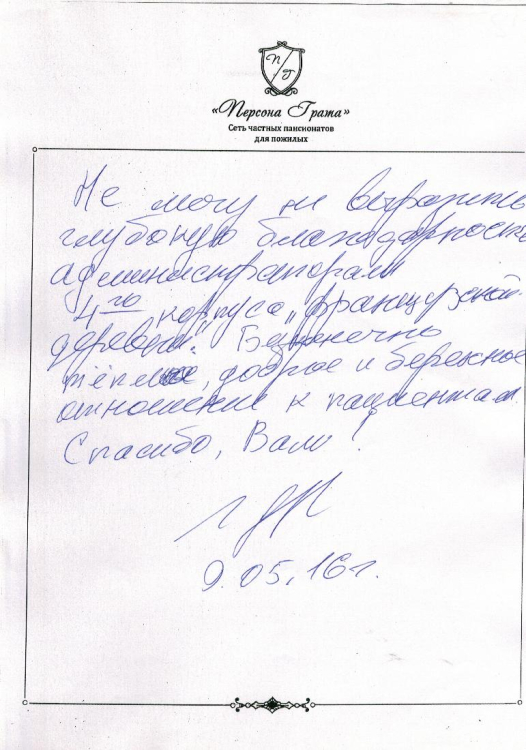 П Г
«Персона Грата»
Сеть частных пансионатов
для пожилых
Не могу не выразить
глубокую благодарность
администраторам
4го корпуса „Французской
деревни". Бесконечно
тёплое, доброе и бережное
отношение к пациентам.
Спасибо, Вам!
9.05.16г.